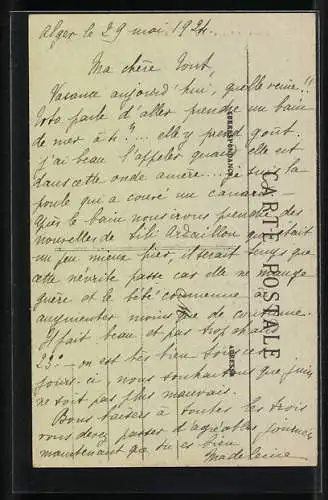 Alger le 29 mai 1924.
Ma chère Tout,
Vacance aujourd'hui, quelle veine!!
parle d'aller prendre un bain
de mer à 4h... elle y prend goût.
j'ai beau l'appeler quand elle est
dans cette onde amère... je suis la
poule qui a couvé un canard.
Après le bain nous irons prendre des
nouvelles de Fifi Ardaillon qui était
un peu mieux hier, il serait temps que
cette névrite passe car elle ne mange
guère et le bébé commence à
augmenter moins que de coutume.
Il fait beau et pas trop chaud
23° - on est très bien tous ces
jours-ci, nous souhaitons que juin
ne soit pas plus mauvais.
Bons baisers à toutes les trois
vous devez passer d'agréables journées
maintenant que tu es bien.
Madeleine
CORRESPONDANCE
CARTE POSTALE
ADRESSE